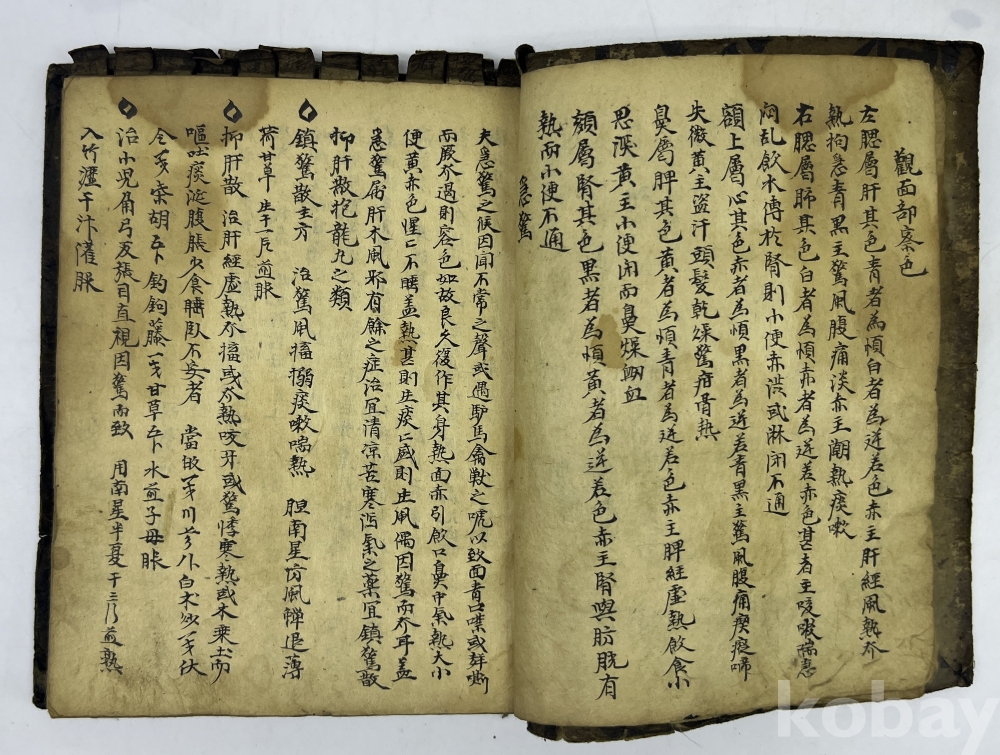 觀面部察色
左腮屬肝其色青者為順白者為逆若色赤主肝經風熱발
熱拘急青黑主驚風腹痛淡赤主潮熱痰嗽
右腮屬肺其色白者為順赤者為逆若赤色甚者主咳嗽喘急
悶乱飲水傳於腎則小便赤澁或淋閉不通
額上屬心其色赤者為順黑者為逆若青黑主驚風腹痛瘈瘲啼
失微黃主盜汗頭髮乾燥驚疳骨熱
鼻屬脾其色黃者為順青者為逆若色赤主脾經虛熱飲食小
思深黃主小便閉而鼻燥衂血
頦屬腎其色黑者為順黃者為逆若色赤主腎與肪胱有
熱而小便不通
急驚
夫急驚之候因聞不常之聲或遇驴馬禽獸之唬以致面青口噤或聲嘶
而厥发過則容色如故良久復作其身熱面赤引飲口鼻中氣熱大小
便黃赤色惺二不睡盖熱甚則生痰二盛則生風偶因驚而发耳盖
急驚屬肝木風邪有餘之症治冝清凉苦寒泻氣之藥冝鎮驚散
抑肝散抱龍九之類
鎮驚散主方 治驚風搐搦痰嗽喘熱 胆南星防風蟬退薄
荷甘草 生干一片煎服
抑肝散 治肝經虛熱发搐或发熱咬牙或驚悸寒熱或木乘土而
嘔吐痰涎腹脹少食睡臥不安者 當㱕 川芎 白术 伏
令 柴胡 鈎藤 甘草 水煎子母服
治小児角弓反張目直視因驚而致 用南星半夏干 煎熟
入竹瀝干汁灌服
kobay